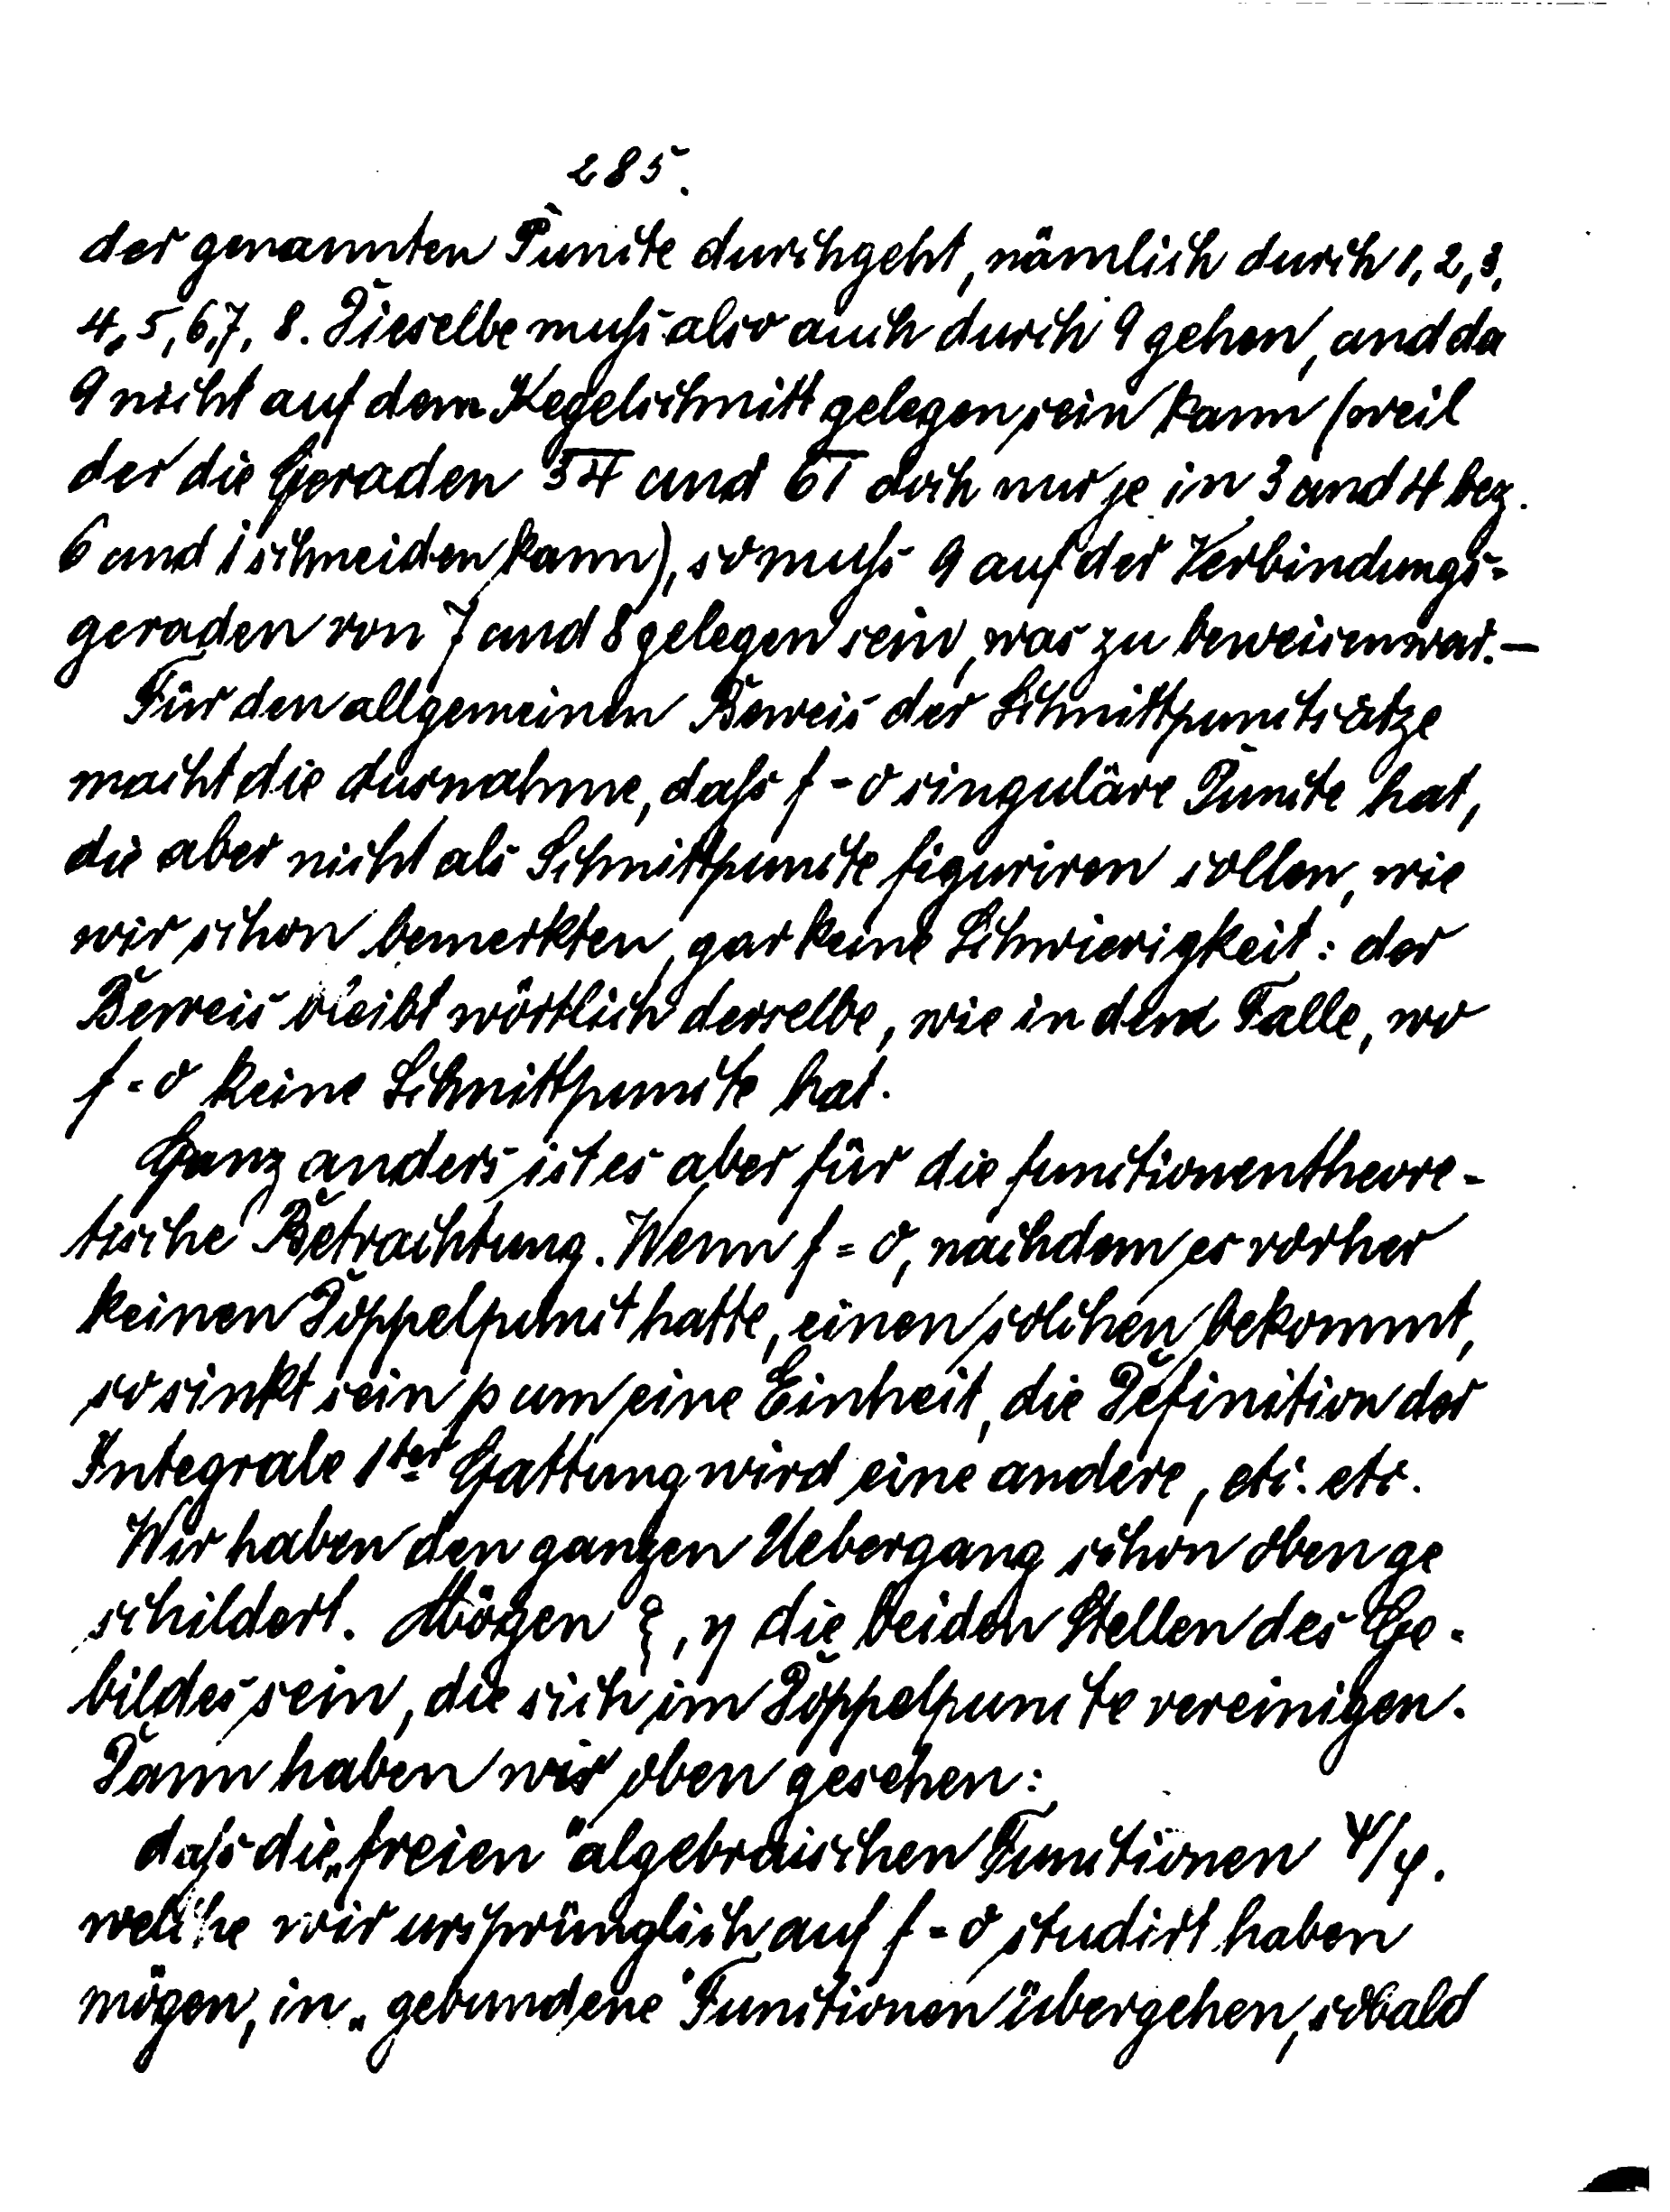 285.
der genannten Puncte durchgeht, nämlich durch 1, 2, 3,
4, 5, 6, 7, 8. Dieselbe muſs also auch durch 9 gehen, und da
9 nicht auf dem Kegelschnitt gelegen sein kann (weil
der die Geraden 3̅4̅ und 6̅1̅ doch nur je in 3 und 4 bez.
6 und 1 schneiden kann), so muſs 9 auf der Verbindungs-
geraden von 7 und 8 gelegen sein, was zu beweisen war. —
Für den allgemeinen Beweis der Schnittpunctsätze
macht die Ausnahme, daſs f = 0 singuläre Puncte hat,
die aber nicht als Schnittpuncte figuriren sollen, wie
wir schon bemerkten, gar keine Schwierigkeit: der
Beweis bleibt wörtlich derselbe, wie in dem Falle, wo
f = 0 keine Schnittpuncte hat.
Ganz anders ist es aber für die functionentheore-
tische Betrachtung. Wenn f = 0, nachdem es vorher
keinen Doppelpunct hatte, einen solchen bekommt,
so sinkt sein p um eine Einheit, die Definition der
Integrale 1ter Gattung wird eine andere, etc. etc.
Wir haben den ganzen Uebergang schon oben ge
schildert. Mögen ξ, η die beiden Stellen des Ge-
bildes sein, die sich im Doppelpuncte vereinigen.
Dann haben wir oben gesehen:
daſs die „freien" algebraischen Functionen ψ/φ.
welche wir ursprünglich auf f = 0 studirt haben
mögen, in „gebundene" Functionen übergehen, sobald